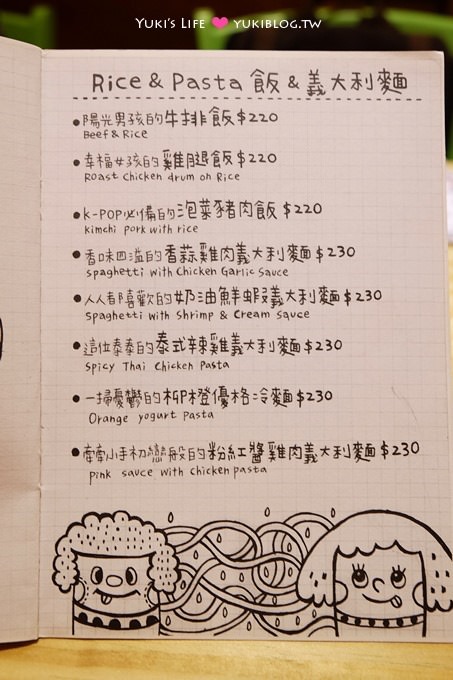 Yuki's Life ♥ yukiblog.tw
Rice & Pasta 飯 & 義大利麵
•陽光男孩的牛排飯$220
Beef & Rice
•幸福女孩的雞腿飯$220
Roast chicken drum on Rice
•K-POP必備的泡菜豬肉飯 $220
kimchi pork with rice
•香味四溢的香蒜雞肉義大利麵$230
spaghetti with Chicken Garlic Sauce
•人人都喜歡的奶油鮮蝦義大利麵$230
Spaghetti with Shrimp & Cream Sauce
•這位泰泰的泰式辣雞義大利麵$230
Spicy Thai Chicken Pasta
•一掃憂鬱的柳橙優格冷麵$230
Orange yogurt pasta
•牽牽小手初戀般的粉紅醬雞肉義大利麵$230
pink sauce with chicken pasta